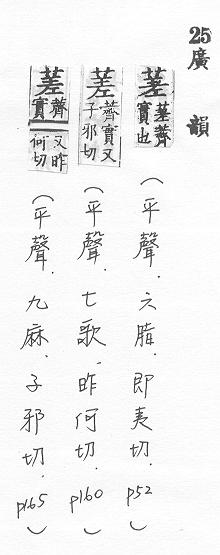 25廣韻
蒫蒫薺實也(平聲.六脂.即夷切.p52)
蒫薺實又子邪切(平聲.七歌.昨何切.p160)
蒫薺實又昨何切(平聲.九麻.子邪切.p165)